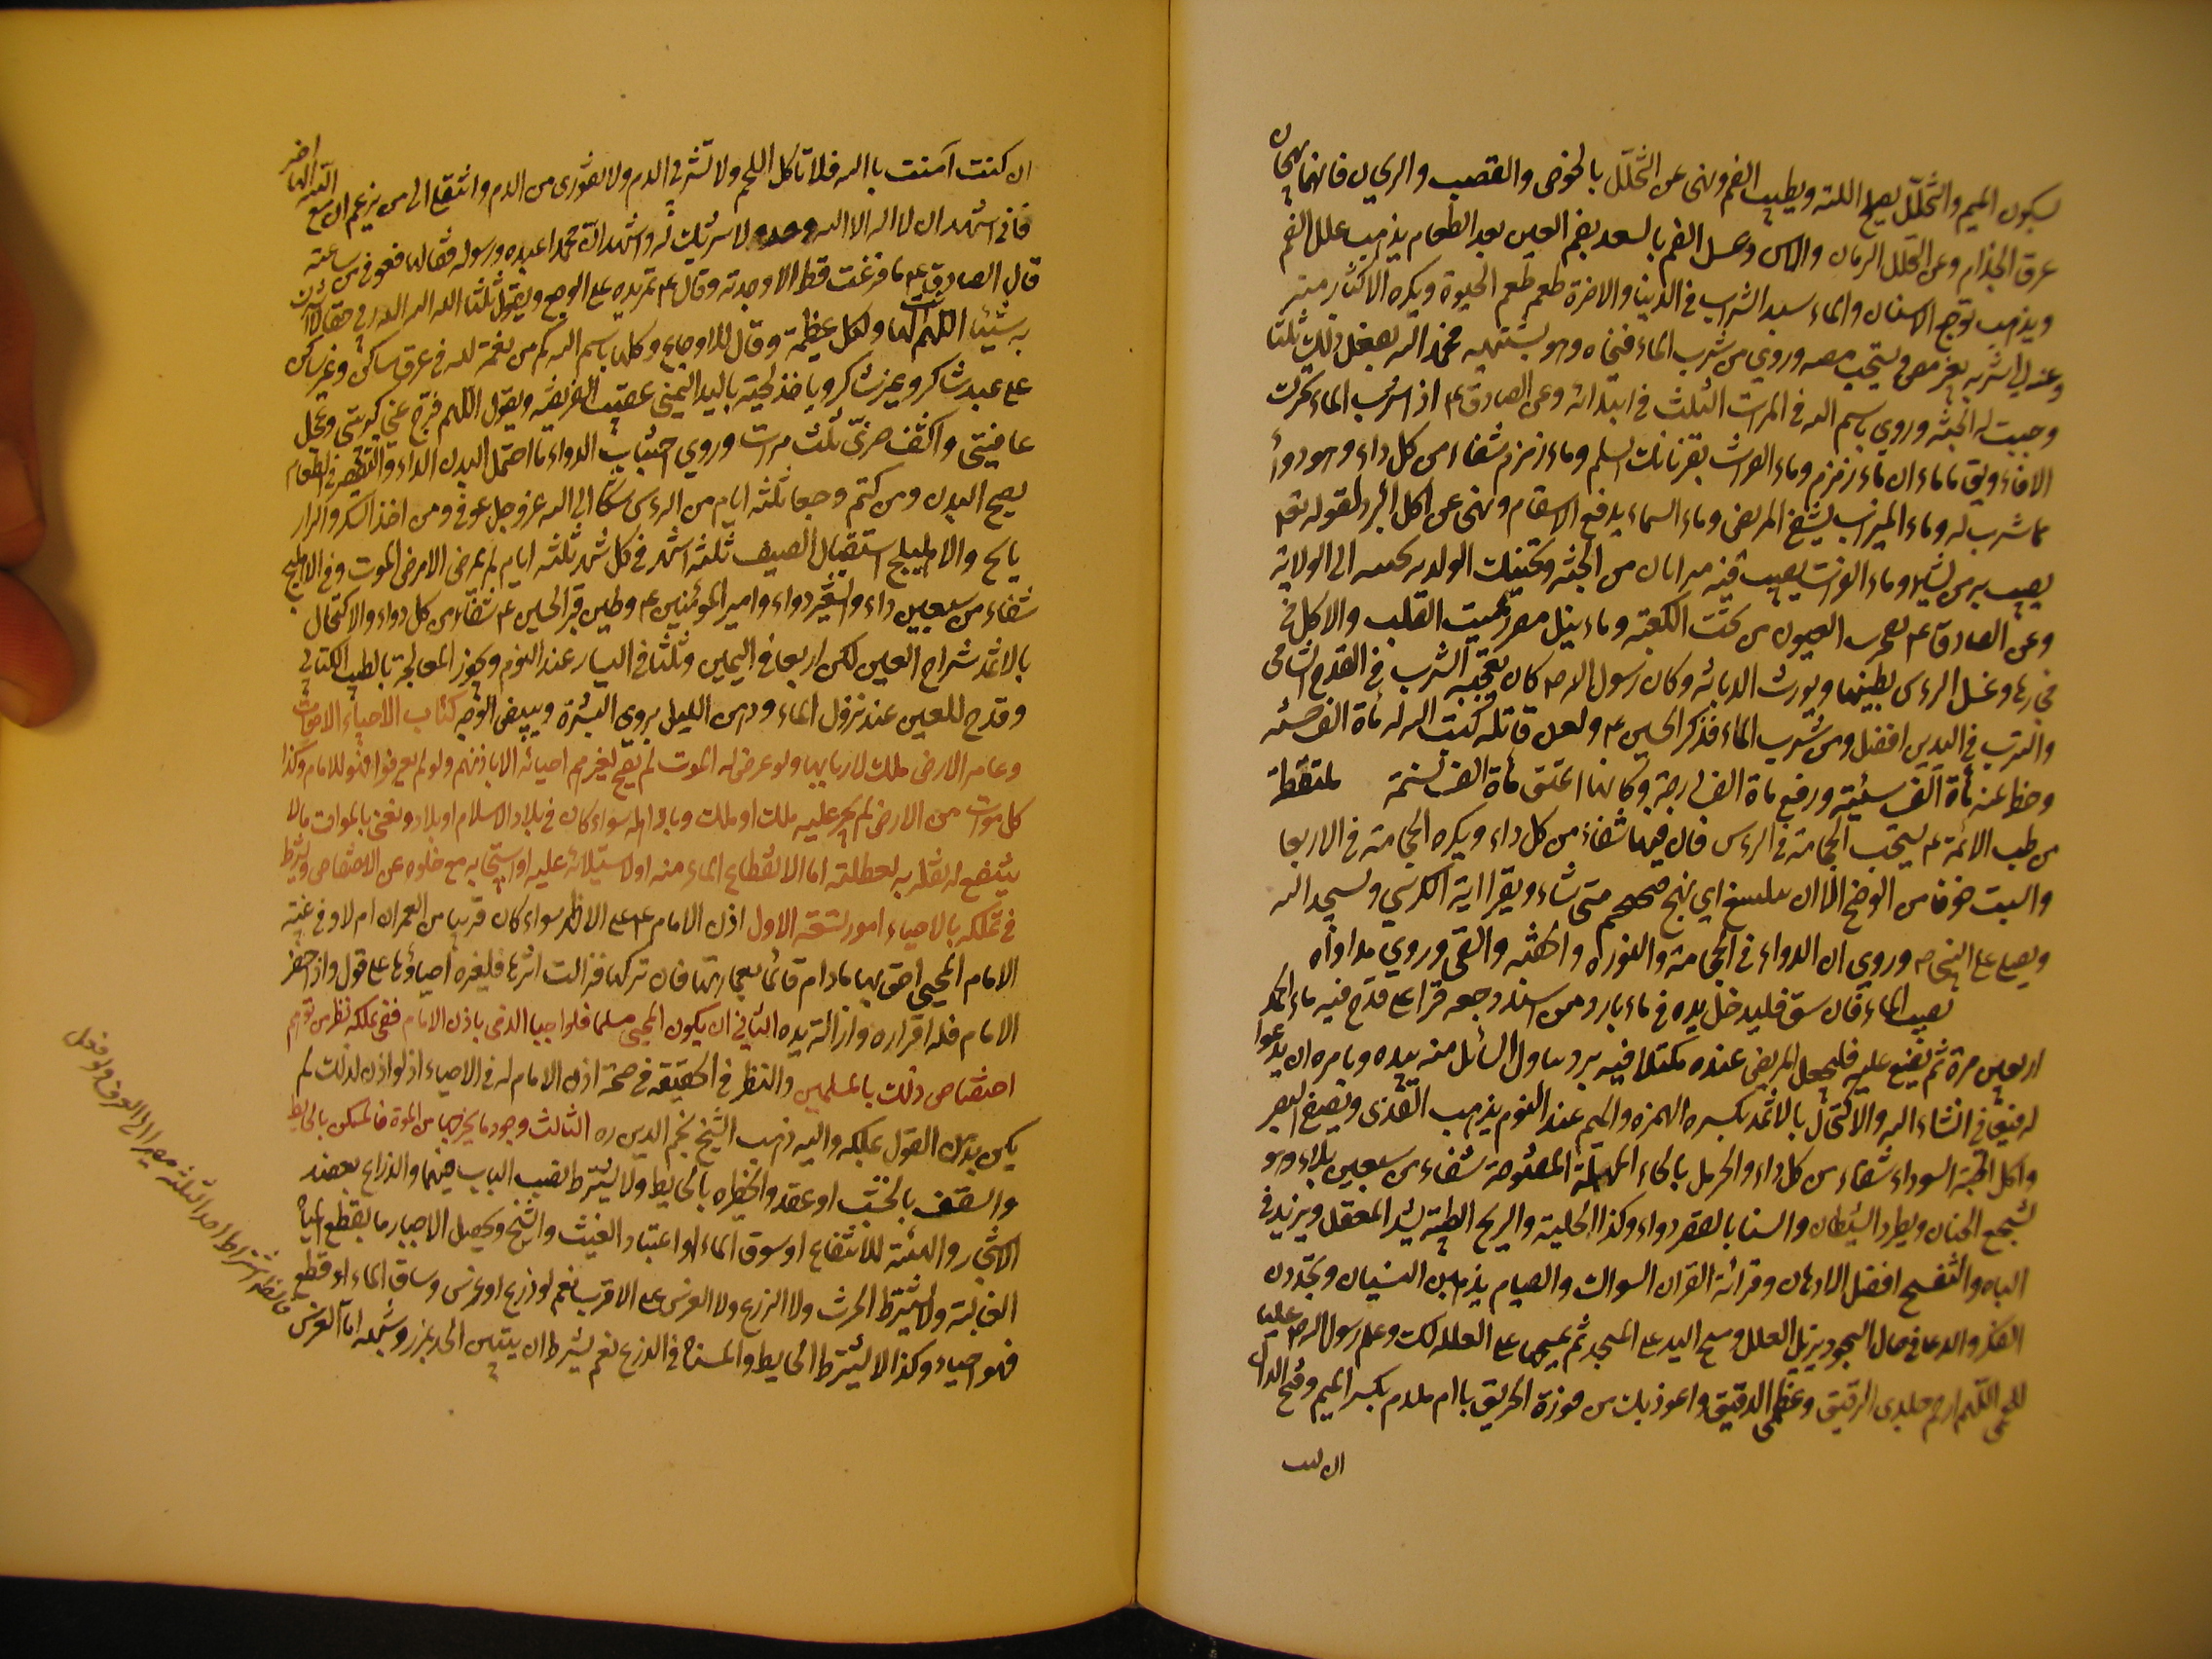 بسكون الميم والتخلّل يصلح اللثه ويطيب الفم ونهى عن التخلّل بالخوص والقصب والريحان فانهما يهيجان
عرق الجذام وعن التخلل الرمان والاس وغسل الفم بالسعد بضم العين بعد الطعام يذهب علل الفم
ويذهب بوجع الاسنان والماء سيد الشراب في الدنيا والاخرة طعمه طعم الحيوة ويكره الاكثار منه
وعنه اي شربه بغير مص ويستحب مصه وروي من شرب الماء فنحاه وهو يشتهيه فحمد الله يفعل ذلك ثلثا
وجبت له الجنّة وروي باسم الله في المرات الثلث في ابتدائه وعن الصادق ع اذا شرب الماء تحرك
الاناء ويق ماماء ان ماء زمزم وماء الفرات يقرئانك السلم وماء زمزم شفاء من كل داء وهو دوأ
مما شرب له وماء الميزاب يشفي المريض وماء السماء يدفع الاسقام ونهى عن اكل البرد لقوله تعم
يصيب به من يشاء وماء الفرات يصب فيه ميزابان من الجنّة وتحنيك الولد به يحببه الى الولاية
وعن الصادق ع تفجرت العيون من تحت الكعبة وماء نيل مصر يميت القلب والاكل في
فخارها وغسل الراس بطينها ويورث الدياثه وكان رسول الله ص كان يعجبه الشرب في القدح الشامي
والشرب في اليدين افضل ومن شرب الماء فذكر الحسين ع ولعن قاتله كتب الله له مأة الف حسنه
وحط عنه مأة الف سيئة ورفع ماة الف درجة وكانما اعتق مأة الف نسمة ملتقطة
من طب الائمة ع يستحب الحجامة في الراس فان فيها شفاء من كل داء ويكره الحجامة في الاربعا
والسبت خوفا من الوضح الا ان يتبيغ اي يهيج متى شاء ويقرا اية الكرسي ويستخير الله
ويصلي على النبي ص وروي ان الدواء في الحجامة والنوره والحقنه والقي وروي مداواة
بصب الماء فان شق فليدخل يده في ماء بارد ومن اشتد وجعه قرا على قدح فيه ماء الحمد
اربعين مرة ثم يضع عليه فليجعل المريض عنده مكتلا فيه بر ويناول السائل منه بيده ويامره ان يدعوا
له فيعافى انشاء الله والاكتحال بالاثمد بكسره الهمزه والميم عند النوم يذهب القذى ويصفي البصر
واكل الحبّة السوداء شفاء من كل داء والحرمل بالحاء المهملة المفتوحة شفاء من سبعين بلاء وهو
يشجع الجنان ويطرد الشيطان والسنا بالقصر دواء وكذا الحلبة والريح الطيبة يشد العقل ويزيد في
الباه والبنفسج افضل الادهان وقرائة القران السواك والصيام يذهبن النسيان ويحددن
الفكر والدعا في حال السجود يزيل العلل ومسح اليد على المسجد ثم يمسحها على العلة كك وعلم رسول الله ص عليا
للحمى اللّهم ارحم جلدي الرقيق وعظمي الدقيق واعوذ بك من فورة الحريق يا ام ملدم بكسر الميم وفتح الدال
ان كنت
ان كنت آمنت بالله فلا تاكل اللحم ولا تشربي الدم ولا تفوري من الدم وانتقلي الى من يزعم ان مع الله الها اخر
فاني اشهد ان لا اله الا الله وحده لا شريك له واشهد ان محمدا عبده ورسوله فقالها فعوفي من ساعته
قال الصادق ع ما فزعت قط الا وجدته وقال ع تمر يده على الوجع ويقول ثلثا الله الله الله ربي حقا لا اشرك
به شيئا اللهم انت لها ولكل عظيمة وقال للاوجاع وكلها بسم الله كم من نعمة لله في عرق ساكن وغير ساكن
على عبد شاكر وغير شاكر وياخذ لحيته باليد اليمنى عقيب الفريضه ويقول اللهم فرّج عني كربتي وعجل
عافيتي واكشف ضرّي ثلث مرات وروي اجتناب الدواء ما احتمل البدن الداء والتقصير في الطعام
يصح البدن ومن كتم وجعا ثلثه ايام من الناس شكا الى الله عز وجل عوفي ومن اخذ السكر والرازيانج
والاهليلج استقبال الصيف ثلثه اشهر في كل شهر ثلثه ايام لم يمرض الا مرض الموت وفي الاهليلج
شفاء من سبعين داء والسعتر دواء امير المؤمنين ع وطين قبر الحسين ع شفاء من كل داء والاكتحال
بالاثمد سراج العين لكن اربعا في اليمين وثلثا في اليسار عند النوم ويجوز المعالجة بالطب الكتابي
وقدح للعين عند نزول الماء ودهن الليل يروي البشرة ويبيض الوجه كتاب الاحياء الاموات
وعامر الارض ملك لاربابها ولو عرض له الموت لم يصح لغيرهم احيائه الا باذنهم ولو لم يعرفوا فهو للامام وكذا
كل موات من الارض لم يجر عليه ملك او ملك وباد اهله سواء كان في بلاد الاسلام او بلاد ونعني بالموات ما لا
ينتفع به لعطلته اما لانقطاع الماء عنه او لاستيلائه عليه او استيجامه مع خلوه عن الاختصاص ويشترط
في تملكه بالاحياء امور تسعة الاول اذن الامام ع على الاظهر سواء كان قريبا من العمران ام لا وفي غيبة
الامام المحيي احق بها ما دام قائما بعمارتها فان تركها فزالت اثارها فلغيره احياؤها على قول واذا حضر
الامام فله اقراره وازالة يده الثاني ان يكون المحيي مسلما فلو احيا الذمي باذن الامام ففي تملكه نظر من توهم
اختصاص ذلك بالمسلمين والنظر في الحقيقه في صحة اذن الامام له في الاحياء اذ لو اذن لذلك لم
يكن بد من القول بملكه واليه ذهب الشيخ نجم الدين ره الثالث وجود ما يخرجها من الموت فالمسكن بالحايط
والسقف بالخشب او عقد والحظيره بالحايط ولا يشترط نصب الباب فيهما والزرع بعضد
الاشجار والتهيئة للانتفاع او سوق الماء او اعتياد الغيث والسيح ويحصل الاحياء بما يقطع المياه
الغالبة ولا يشترط الحرث ولا الزرع ولا الغرس على الاقرب نعم لو زرع او غرس وساق الماء او قطع
فهو احياء وكذا لا يشترط الحايط والمسناة في الزرع نعم يشترط ان يبين الحد بمرز وشبهه اما الغرس
فالظاهر اشتراط احد الثلثه مصيرا الى العرف ولو فعل